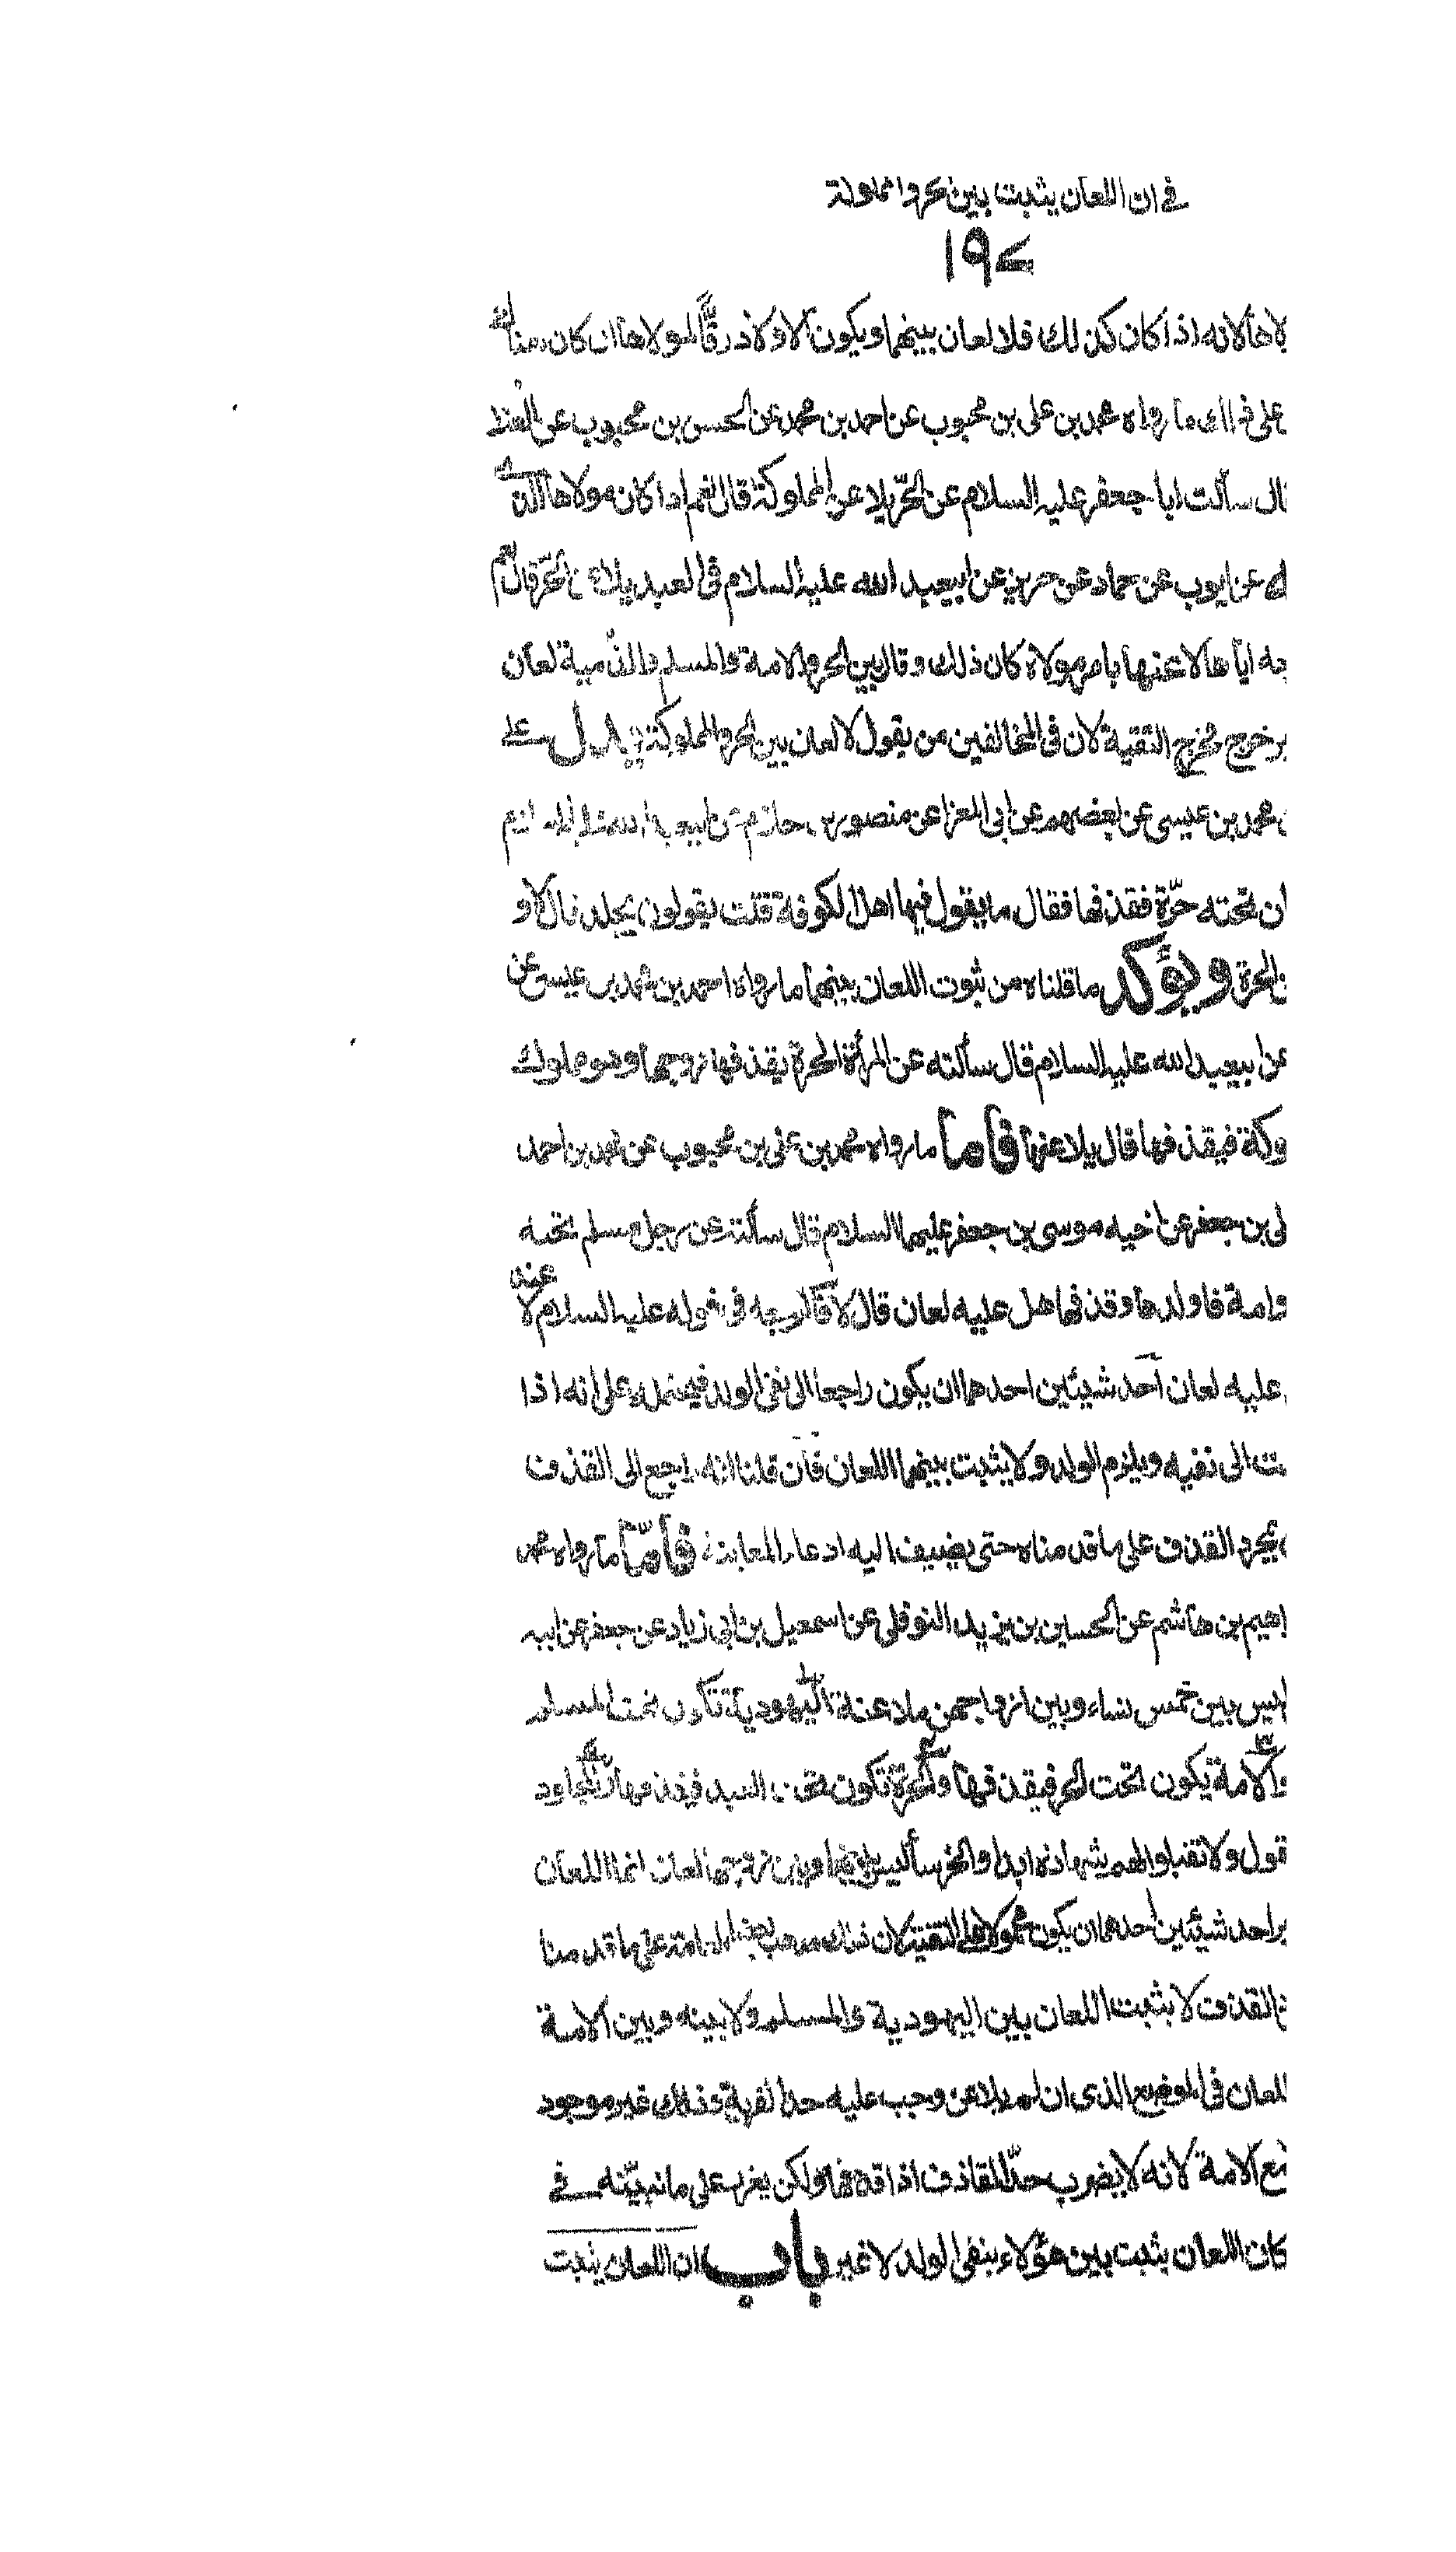 في ان اللعان يثبت بين الحر والمملوكة
١٩٤
لاها لانه اذا كان كذلك فلا لعان بينهما ويكون الاولاد رقّا لمولاها ان كان
على ذلك ما رواه محمد بن على بن محبوب عن احمد بن محمد عن الحسن بن محبوب عن العلا
قال سألت ابا جعفر عليه السلام عن الحرّ يلاعن المملوكة قال نعم اذا كان مولاها الذي
عن ايوب عن حماد عن حريز عن ابيعبد الله عليه السلام في العبد يلاعن الحرّة قال نعم
اياها لاعنها بامر مولاه كان ذلك وقال بين الحر والامة والمسلم والذّمية لعان
خرج مخرج التقية لان في المخالفين من يقول لا لعان بين الحر والمملوكة على
محمد بن عيسى عن بعضهم عن ابى المعزا عن منصور بن حازم عن ابيعبد الله عليه السلام
تحته حرّة فقذفها فقال ما يقول فيها اهل الكوفة قلت يقولون يجلد قال لا و
الحرة ويؤكد ما قلناه من ثبوت اللعان بينهما ما رواه احمد بن محمد بن عيسى عن
عن ابيعبد الله عليه السلام قال سألته عن المرأة الحرة يقذفها زوجها وهو مملوك
فيقذفها قال يلاعنها فاما ما رواه محمد بن على بن محبوب عن محمد بن احمد
بن جعفر عن اخيه موسى بن جعفر عليهما السلام قال سألته عن رجل مسلم تحته
وامة فاولدها وقذفها هل عليه لعان قال لا فالوجه في قوله عليه السلام لا
عليه لعان احد شيئين احدهما ان يكون راجعا الى نفى الولد على انه اذا
الى نفيه ويلزم الولد ولا يثبت بينهما اللعان فان قلنا انه راجع الى القذف
بمجرد القذف على ما قدمناه حتى يضيف اليه ادعاء المعاينة فامّا ما رواه محمد
بن هاشم عن الحسين بن يزيد النوفلى عن اسمعيل بن ابى زياد عن جعفر عن ابيه
ليس بين خمس نساء وبين ازواجهن ملاعنة اليهودية تكون تحت المسلم
والامة تكون تحت الحر فيقذفها والحرة تكون تحت العبد فيقذفها والمجلود
ولا تقبلوا لهم شهادة ابدا والخرسا ليس بينها وبين زوجها لعان انما اللعان
احد شيئين احدهما ان يكون محمولا على التقية لان ذلك مذهب بعض العامة على ما قدمنا
القذف لا يثبت اللعان بين اليهودية والمسلم ولا بينه وبين الامة
اللعان في الموضع الذى ان لم يلاعن وجب عليه حد الفرية وذلك غير موجود
مع الامة لانه لا يضرب حدّ القاذف اذا قذفها ولكن يعزر على ما نبيّنه في
كان اللعان يثبت بين هؤلاء بنفى الولد لا غير باب ان اللعان يثبت